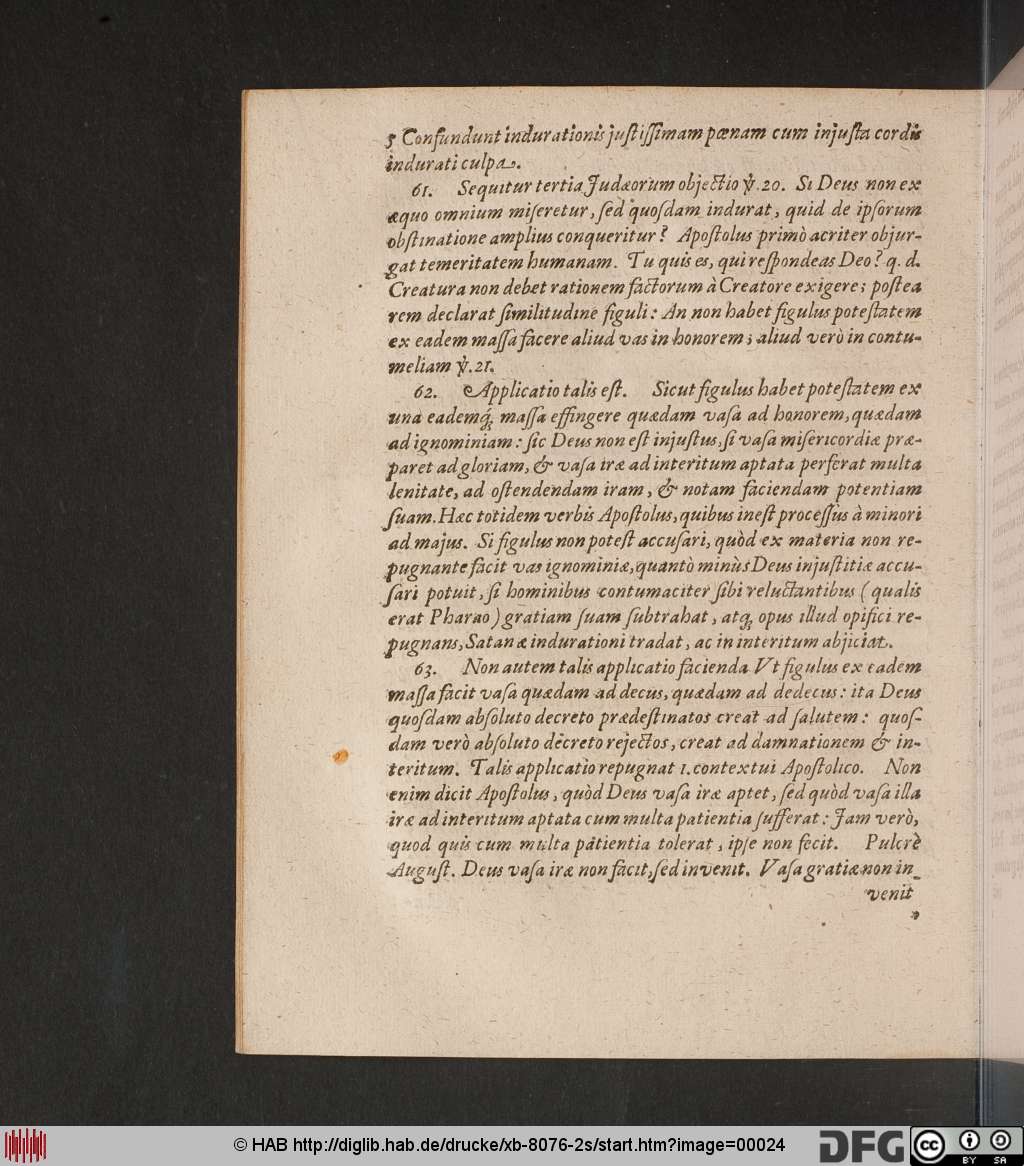 5 Confundunt indurationis justissimam pœnam cum injusta cordis
indurati culpa.
61. Sequitur tertia Judæorum objectio ℣.20. Si Deus non ex
æquo omnium miseretur, sed quosdam indurat, quid de ipsorum
obstinatione amplius conqueritur? Apostolus primò acriter objur-
gat temeritatem humanam. Tu quis es, qui respondeas Deo? q. d.
Creatura non debet rationem factorum à Creatore exigere; postea
rem declarat similitudine figuli: An non habet figulus potestatem
ex eadem massa facere aliud vas in honorem; aliud verò in contu-
meliam ℣.21.
62. Applicatio talis est. Sicut figulus habet potestatem ex
una eademq́; massa effingere quædam vasa ad honorem, quædam
ad ignominiam: sic Deus non est injustus, si vasa misericordiæ præ-
paret ad gloriam, & vasa iræ ad interitum aptata perferat multa
lenitate, ad ostendendam iram, & notam faciendam potentiam
suam. Hæc totidem verbis Apostolus, quibus inest processus à minori
ad majus. Si figulus non potest accusari, quòd ex materia non re-
pugnante facit vas ignominiæ, quantò minùs Deus injustitiæ accu-
sari potuit, si hominibus contumaciter sibi reluctantibus (qualis
erat Pharao) gratiam suam subtrahat, atq; opus illud opifici re-
pugnans, Satanæ indurationi tradat, ac in interitum abjiciat.
63. Non autem talis applicatio facienda Vt figulus ex eadem
massa facit vasa quædam ad decus, quædam ad dedecus: ita Deus
quosdam absoluto decreto prædestinatos creat ad salutem: quos-
dam verò absoluto decreto rejectos, creat ad damnationem & in-
teritum. Talis applicatio repugnat 1. contextui Apostolico. Non
enim dicit Apostolus, quòd Deus vasa iræ aptet, sed quòd vasa illa
iræ ad interitum aptata cum multa patientia sufferat: Jam verò,
quod quis cum multa patientia tolerat, ipse non fecit. Pulcrè
August. Deus vasa iræ non facit, sed invenit. Vasa gratiæ non in-
venit
© HAB http://diglib.hab.de/drucke/xb-8076-2s/start.htm?image=00024
DFG
cc BY SA